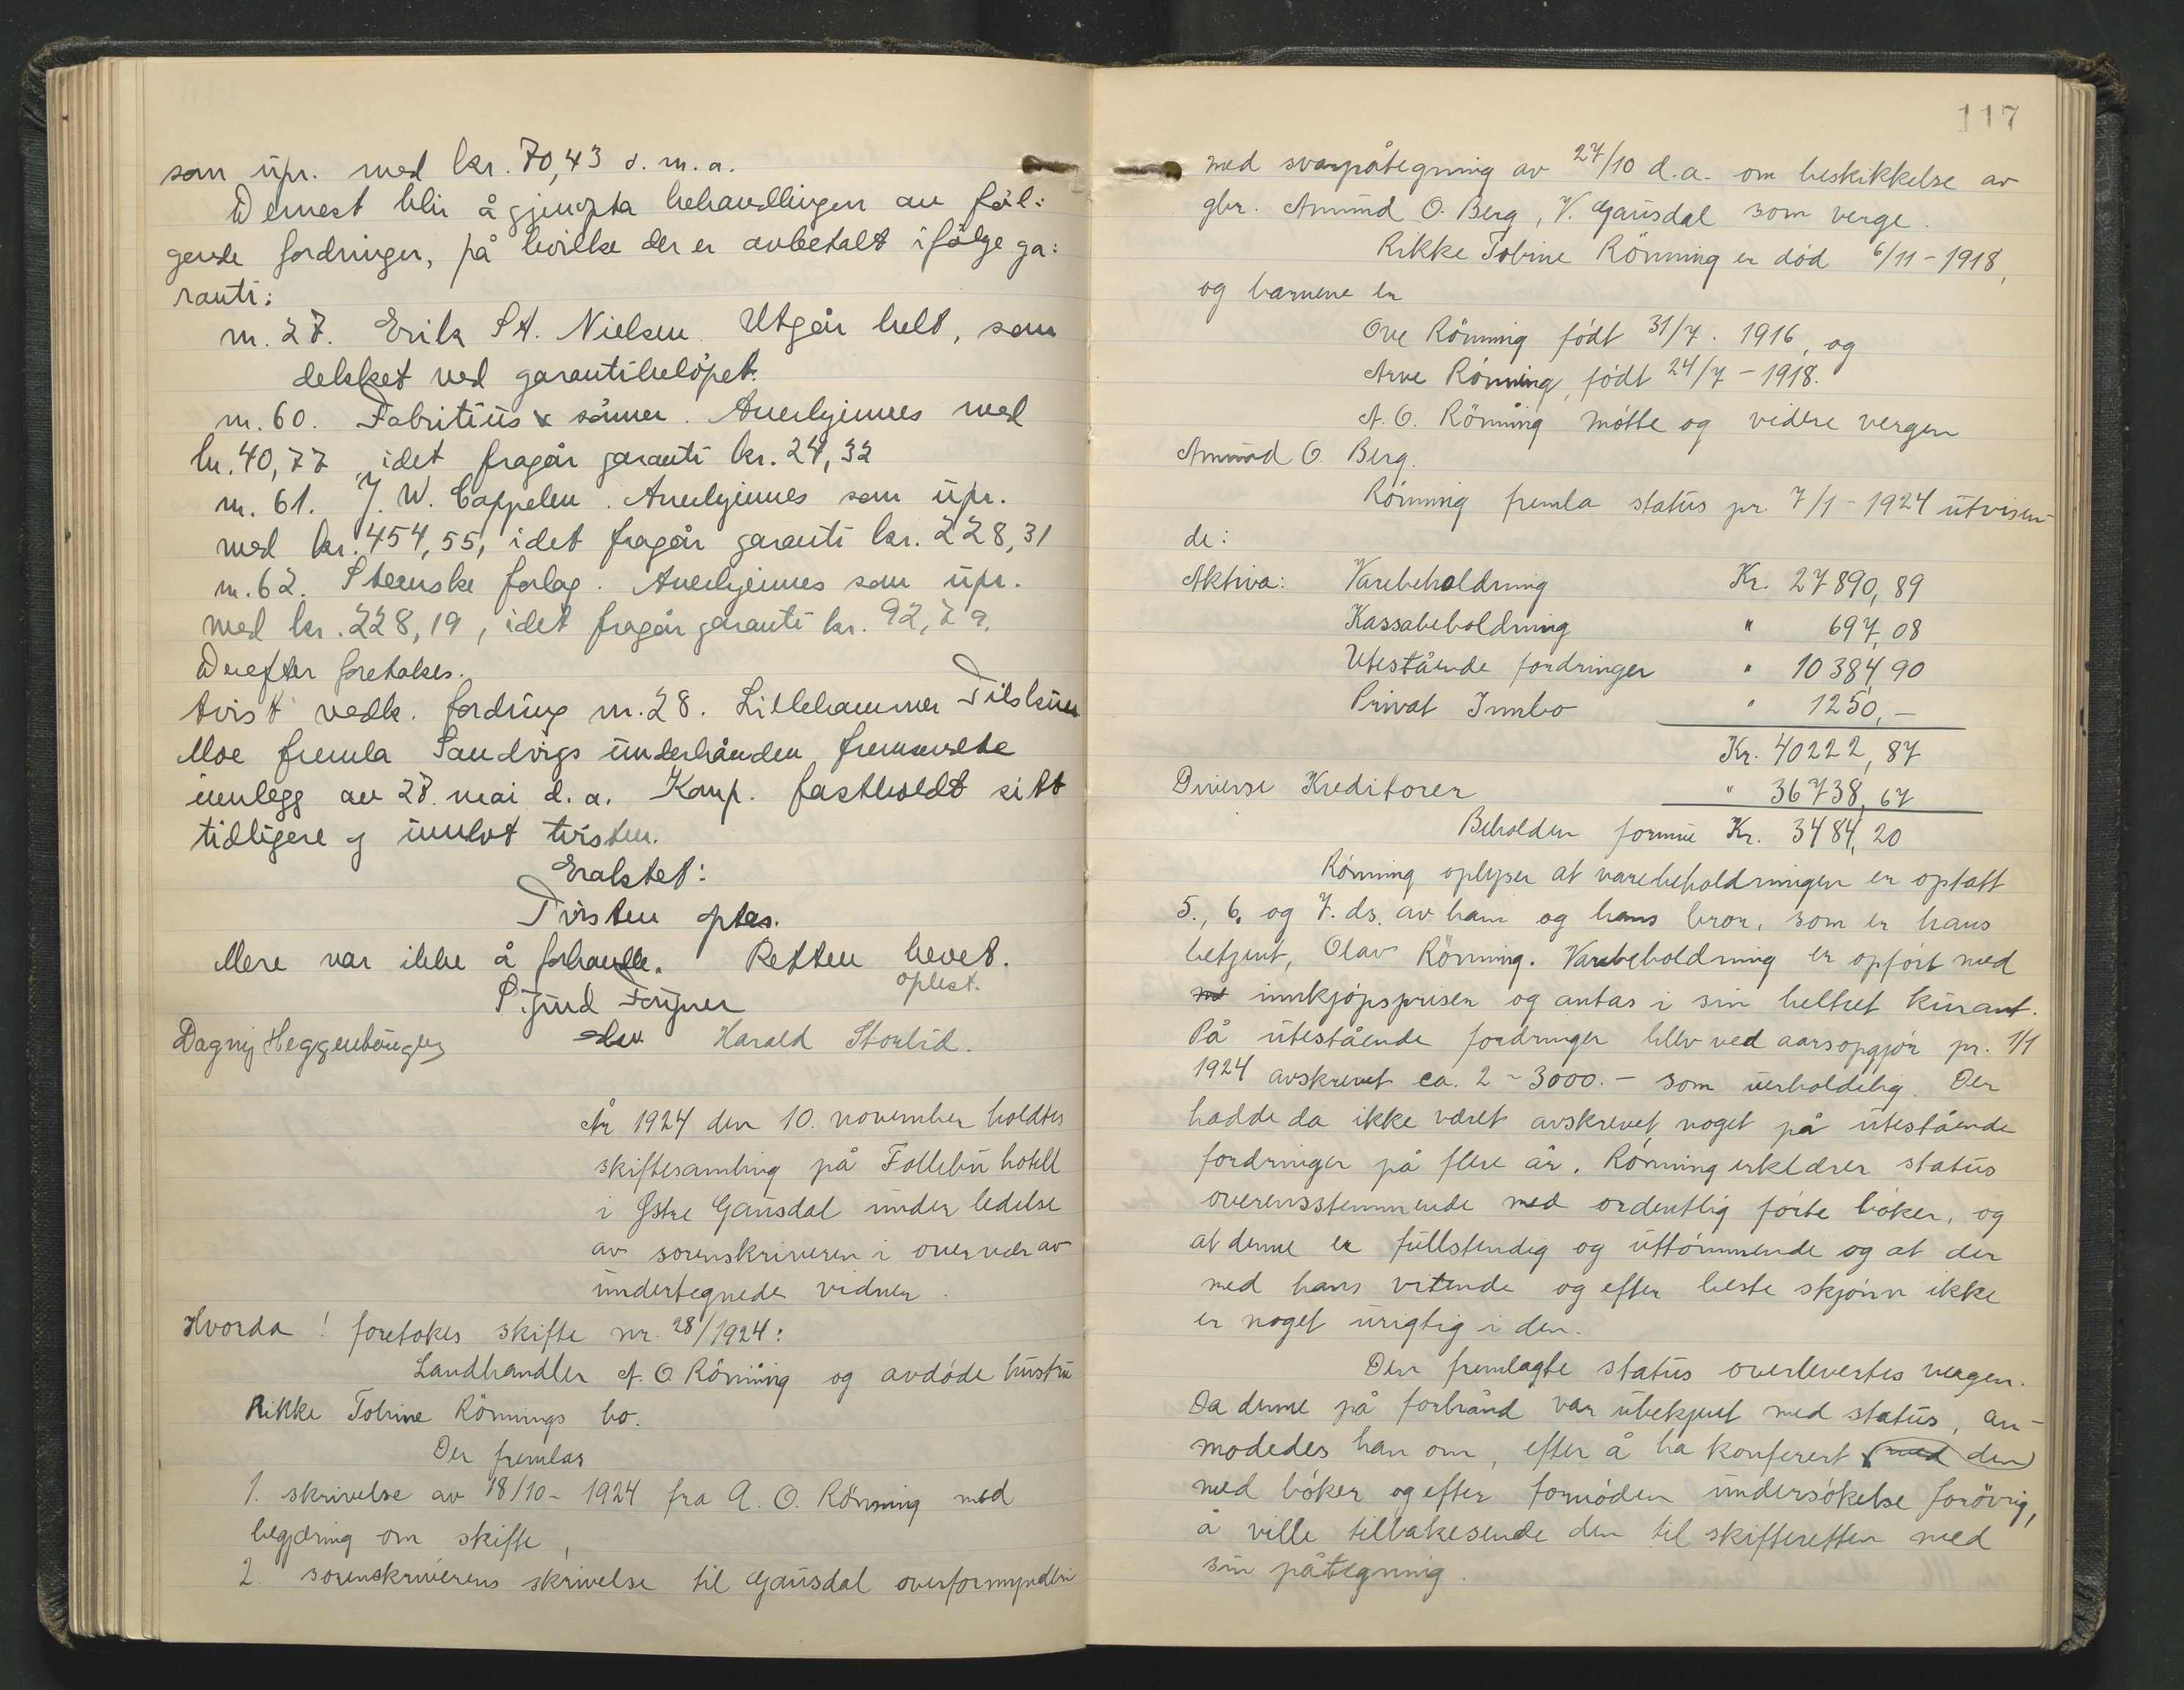 som upr. med kr. 70,43 o. m. a.
Dernest blir å gjenopta behandlingen av føl:
gende fordringer, på hvilke der er avbetalt ifølge ga:
ranti:
nr. 27. Erik St. Nielsen. Utgår helt, som
dekket ved garantibeløpet.
nr. 60. Fabritius & sønner. Anerkjennes med
kr. 40,77, idet fragår garanti kr. 24,32
nr. 61. J. W. Cappelen. Anerkjennes som upr.
med kr. 454,55, idet fragår garanti kr. 228,31
nr. 62. Steenske forlag. Anerkjennes som upr.
med kr. 228,19, idet fragår garanti kr. 92,79.
Derefter foretokes.
tvist vedk. fordring nr. 28. Lillehammer Tilskuer
Moe fremla Sandvigs underhånden fremsendte
innlegg av 28. mai d. a. Komp. fastholdt sitt
tidligere og innlot tvisten.
Eraktet:
Tvisten optas.
Mere var ikke å forhandle. Retten hevet.
oplest.
Sigurd Fougner
Dagny Heggenhougen Harald Storlid.
År 1924 den 10. november holdtes
skiftesamling på Follebu hotell
i Østre Gausdal under ledelse
av sorenskriveren i overvær av
undertegnede vidner.
Hvorda! foretokes skifte nr. 28/1924:
Landhandler A. O. Rönning og avdøde hustru
Rikke Tobine Rönnings bo.
Der fremlas
1. skrivelse av 18/10 - 1924 fra A. O. Rönning med
begjæring om skifte,
2. sorenskriverens skrivelse til Gausdal overformynderi
117
med svarpåtegning av 27/10 d. a. om beskikkelse av
gbr. Amund O. Berg, V. Gausdal som verge.
Rikke Tobine Rönning er död 6/11 - 1918,
og barnene er
Ove Rönning födt 31/7. 1916, og
Arve Rönning, födt 24/7 - 1918.
A. O. Rönning mötte og videre vergen
Amund O. Berg.
Rönning fremla status pr. 7/1 - 1924 utvisen-
de:
Aktiva: Varebeholdning Kr. 27890,89
Kassabeholdning " 697,08
Utestående fordringer " 10384,90
Privat Innbo " 1250,-
Kr. 40222,87
Diverse Kreditorer " 36738,67
Beholden formue Kr. 3484,20
Rönning oplyser at varebeholdningen er optatt
5., 6. og 7. ds. av ham og hans bror, som er hans
betjent, Olav Rönning. Varebeholdning er opfört med
innkjöpsprisen og antas i sin helhet kurant.
På utestående fordringer blev ved aarsopgjör pr. 1/1
1924 avskrevet ca. 2 - 3000.- som uerholdelig. Der
hadde da ikke været avskrevet noget på utestående
fordringer på flere år. Rönning erklærer status
overensstemmende med ordentlig förte böker, og
at denne er fullstendig og uttömmende og at der
med hans vitende og efter beste skjönn ikke
er noget urigtig i den.
Den fremlagte status overlevertes vergen.
Da denne på forhånd var ubekjent med status, an-
modedes han om, efter å ha konferert (med den)
med böker og efter fornöden undersökelse forövrig,
å ville tilbakesende den til skifteretten med
sin påtegning.